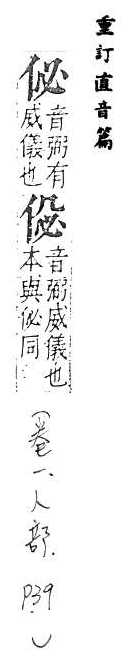 重訂直音篇
佖
音弼有
威儀也
音弼威儀也
本與佖同
(卷一.人部. P39)